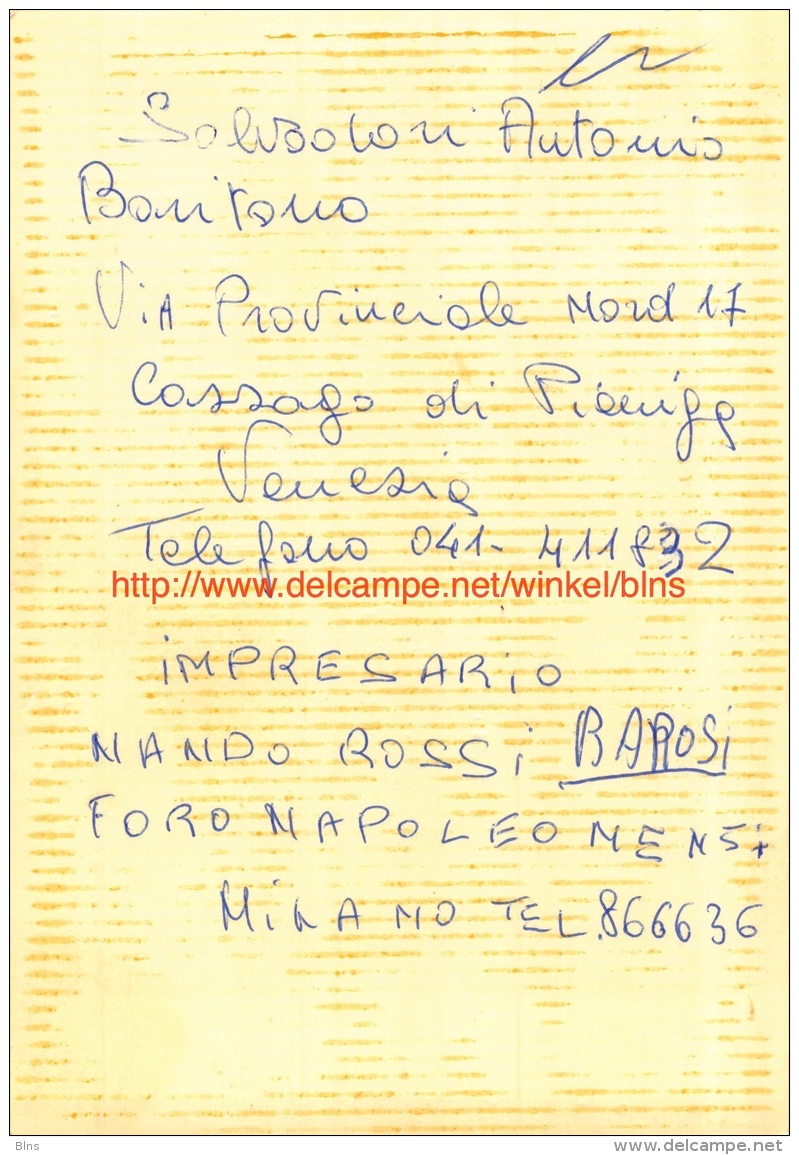 Salvadori Antonio
Baritono
Via Provinciale Nord 17
Cazzago di Pianiga
Venezia
Telefono 041-411832
http://www.delcampe.net/winkel/blns
iMPRESARiO
NANDO ROSSi BAROSi
FORO NAPOLEONE
MiLANO TEL.866636
Blns
www.delcampe.net